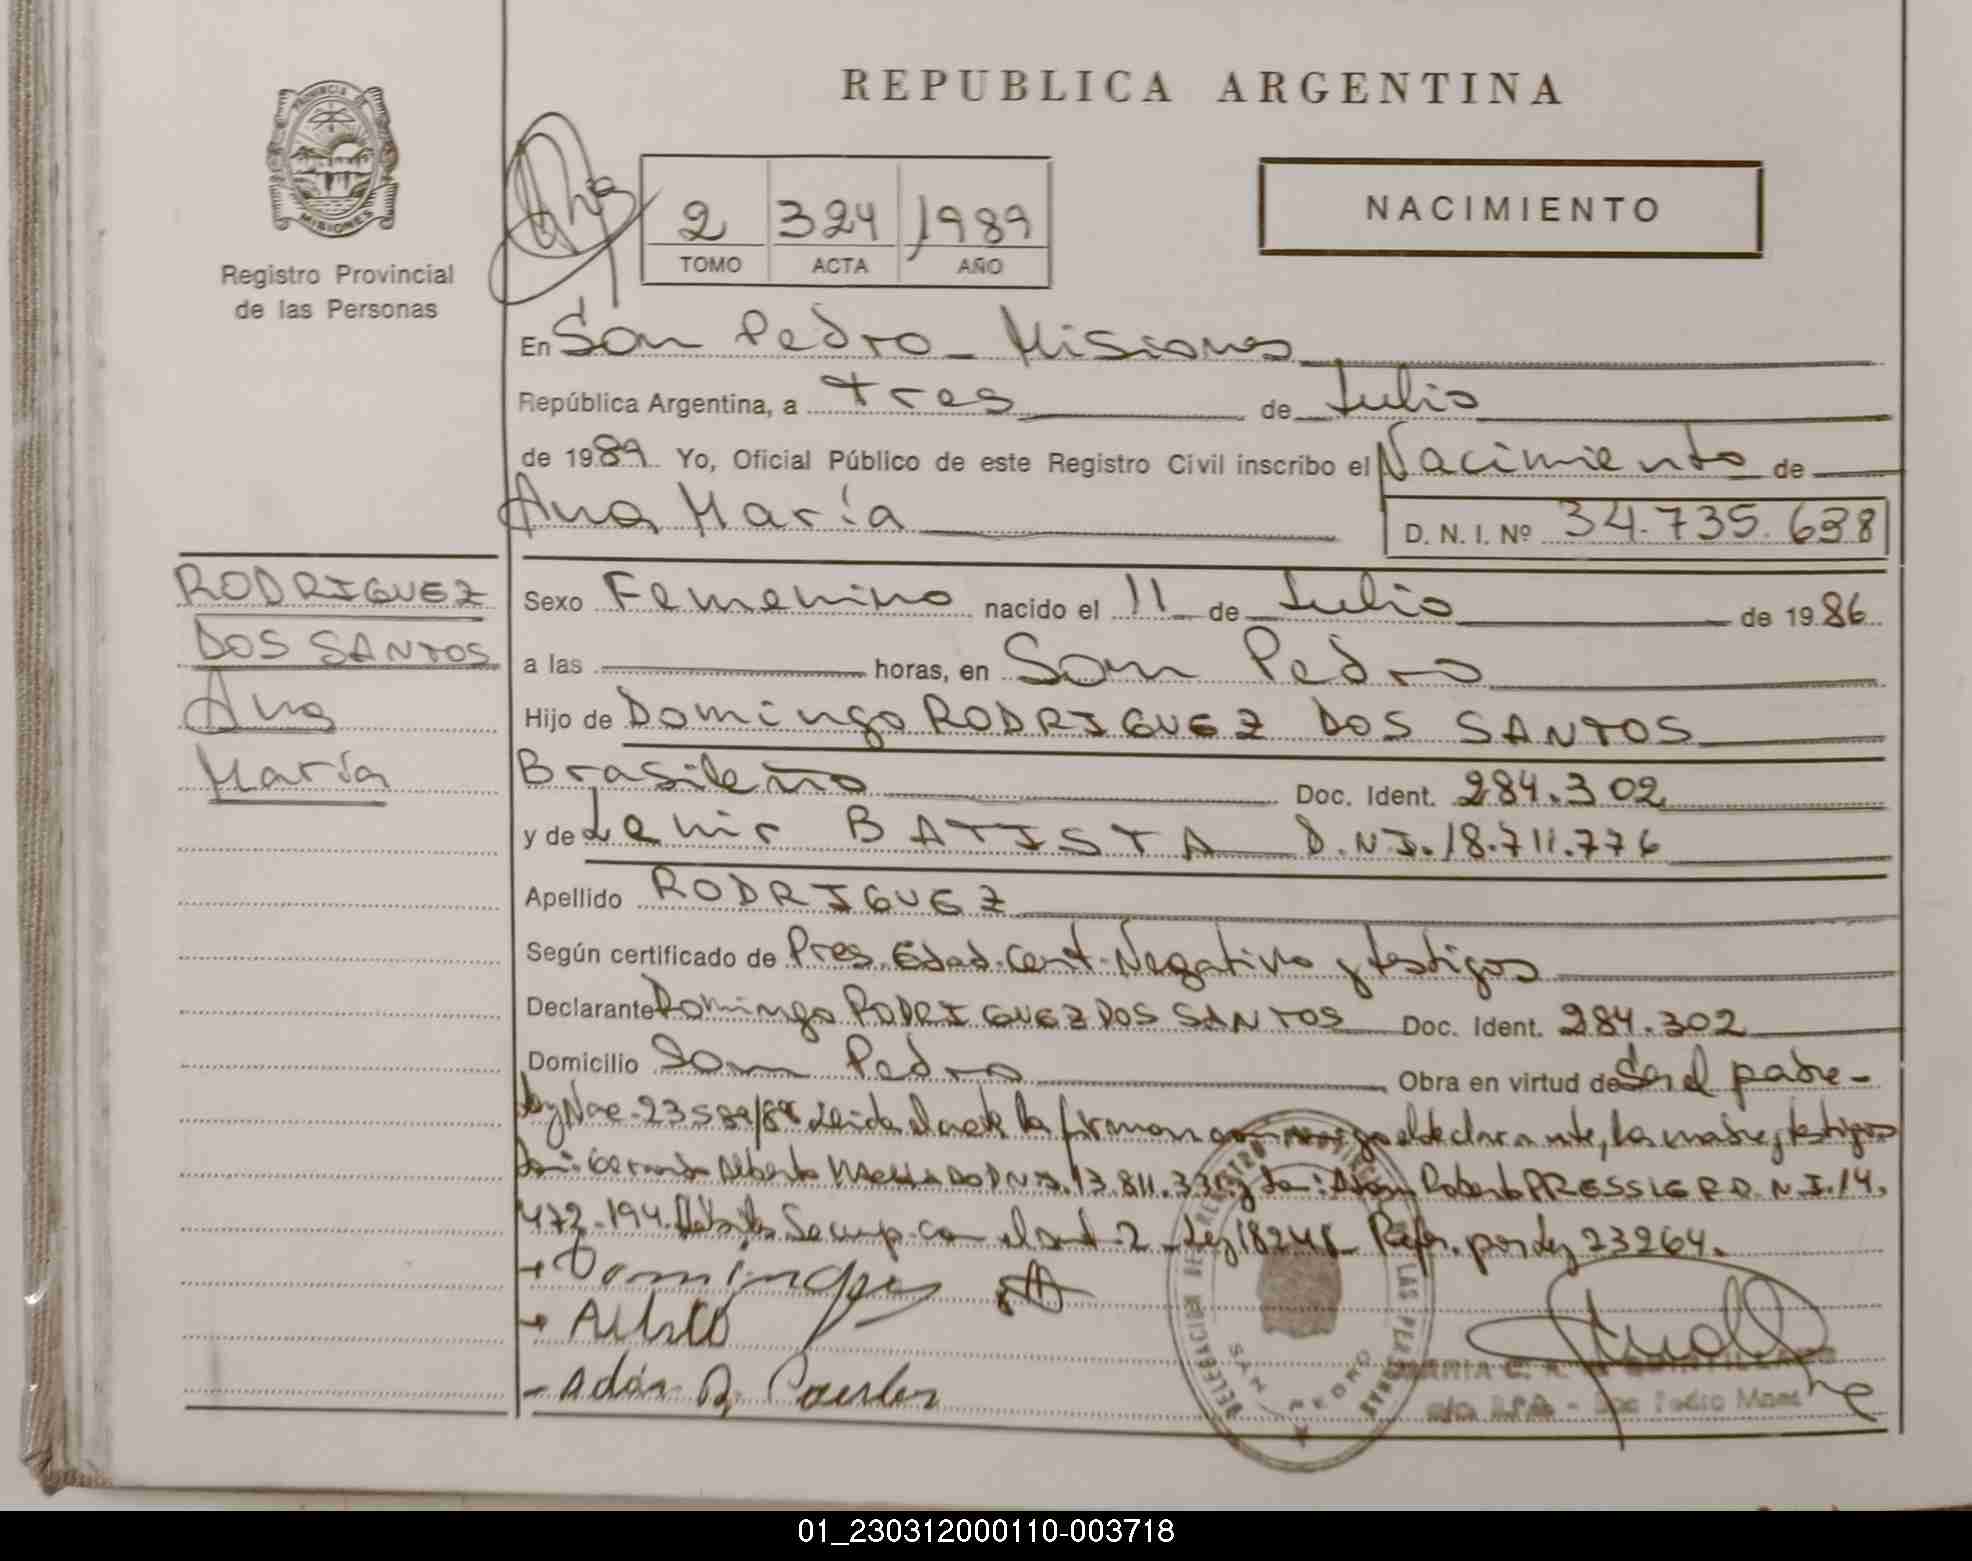 REPUBLICA ARGENTINA
PROVINCIA DE
MISIONES
Registro Provincial
de las Personas
2 324 1989
TOMO ACTA AÑO
NACIMIENTO
En San Pedro - Misiones
República Argentina, a tres de Julio
de 1989. Yo, Oficial Público de este Registro Civil inscribo el Nacimiento de
Ana María
D. N. I. Nº 34.735.638
RODRIGUEZ
DOS SANTOS
Ana
María
Sexo Femenino nacido el 11 de Julio de 1986
a las horas, en San Pedro
Hijo de Domingo RODRIGUEZ DOS SANTOS
Brasileño Doc. Ident. 284.302
y de Lenir BATISTA D.N.I. 18.711.776
Apellido RODRIGUEZ
Según certificado de Pres. Edad. Cert. Negativo y testigos
Declarante Domingo RODRIGUEZ DOS SANTOS Doc. Ident. 284.302
Domicilio San Pedro Obra en virtud de Ser el padre-
Ley Nac. Leida el acta la firman conmigo el declarante, la madre y testigos
Alberto D.N.I. 13.811. Adan Roberto PRESSLER D.N.I. 14.
472.194. con el art. 2 Ley 18248 Refor. por Ley 23264.
Alberto
Adán R.
DELEGACION DE REGISTRO PROVINCIAL DE LAS PERSONAS
SAN PEDRO
MARIA C.
01_230312000110-003718